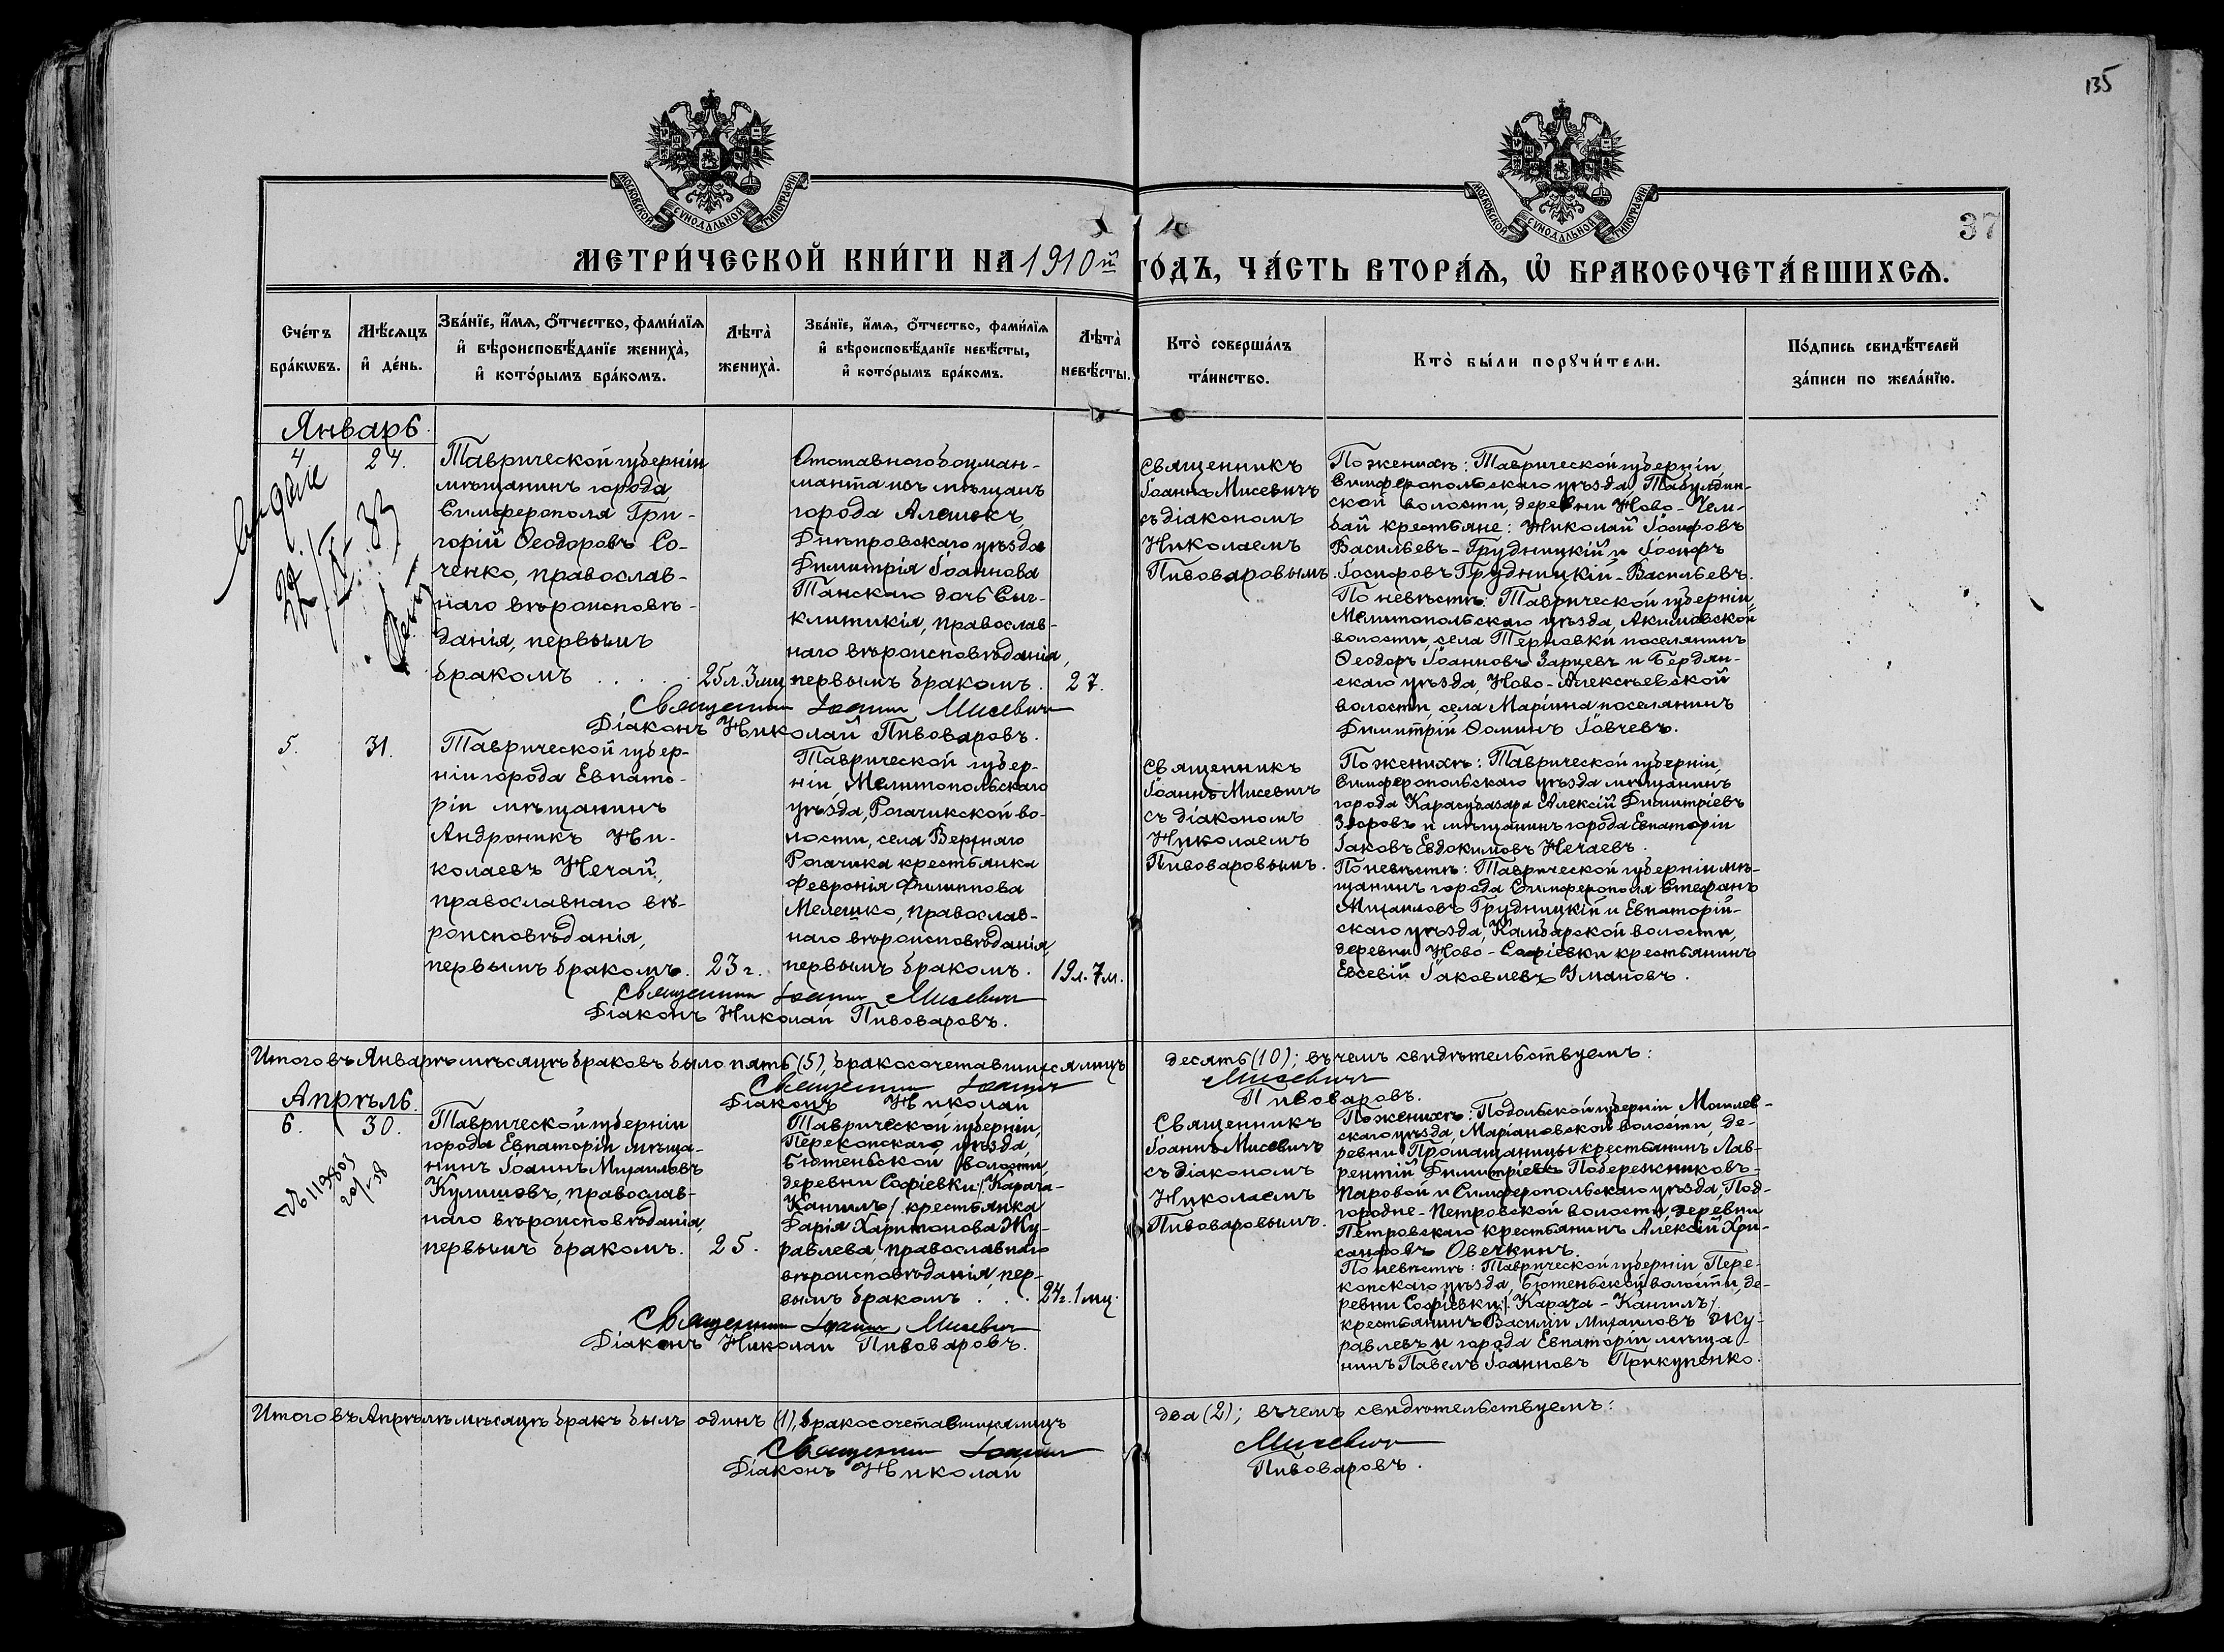 135
37
МОСКОВСКОЙ СѴНОДАЛЬНОЙ ТИПОГРАФІИ
МОСКОВСКОЙ СѴНОДАЛЬНОЙ ТИПОГРАФІИ
МЕТРИ́ЧЕСКОЙ КНИ́ГИ НА 1910й ГО́ДЪ, ЧА́СТЬ ВТОРА́Ѧ, Ѽ БРАКОСОЧЕТА́ВШИХСѦ.
Сче́тъ
бра́кѡвъ.
Мѣ́сѧцъ
и҆ де́нь.
Зва́нїе, и҆́мѧ, ѻ҆́тчество, фами́лїѧ
и҆ вѣроисповѣ́данїе жениха̀,
и҆ кото́рымъ бра́комъ.
Лѣта̀
жениха̀.
Зва́нїе, и҆́мѧ, ѻ҆́тчество, фами́лїѧ
и҆ вѣроисповѣ́данїе невѣ́сты,
и҆ кото́рымъ бра́комъ.
Лѣта̀
невѣ́сты.
Кто̀ соверша́лъ
та́инство.
Кто̀ бы́ли порꙋчи́тели.
По́дпись свидѣ́телей
за́писи по жела́нїю.
Январь.
4
24.
Таврической губерніи
мѣщанинъ города
Симферополя Гри-
горій Ѳеодоровъ Со-
ченко, православ-
наго вѣроисповѣ-
данія, первымъ
бракомъ . . . .
25 л. 3 мц.
Отставного боцман-
манта изъ мѣщанъ
города Алешекъ,
Днѣпровскаго уѣзда
Димитрія Іоаннова
Танскаго дочь Син-
клитикія, православ-
наго вѣроисповѣданія,
первымъ бракомъ.
27.
Священникъ
Іоаннъ Мисевичъ
съ діакономъ
Николаемъ
Пивоваровымъ.
По женихѣ: Таврической губерніи,
Симферопольскаго уѣзда, Табулдин-
ской волости, деревни Ново-Чем-
бай крестьяне: Николай Іосифовъ
Васильевъ-Грудницкій и Іосифъ
Іосифовъ Грудницкій-Васильевъ.
По невѣстѣ: Таврической губерніи,
Мелитопольскаго уѣзда, Акимовской
волости, села Терновки поселянинъ
Ѳеодоръ Іоанновъ Зарцевъ и Бердян-
скаго уѣзда, Ново-Алексѣевской
волости, села Маріина поселянинъ
Димитрій Ѳоминъ Іовчевъ.
Священникъ Іоаннъ Мисевичъ
Діаконъ Николай Пивоваровъ.
5.
31.
Таврической губер-
ніи города Евпато-
ріи мѣщанинъ
Андроникъ Ни-
колаевъ Нечай,
православнаго вѣ-
роисповѣданія,
первымъ бракомъ.
23 г.
Таврической губер-
ніи, Мелитопольскаго
уѣзда, Рогачикской во-
лости, села Верхняго
Рогачика крестьянка
Февронія Филиппова
Мелешко, православ-
наго вѣроисповѣданія,
первымъ бракомъ.
19 л. 7 м.
Священникъ
Іоаннъ Мисевичъ
съ діакономъ
Николаемъ
Пивоваровымъ.
По женихѣ: Таврической губерніи,
Симферопольскаго уѣзда мѣщанинъ
города Карасубазара Алексій Димитріевъ
Здоровъ и мѣщанинъ города Евпаторіи
Іаковъ Евдокимовъ Нечаевъ.
По невѣстѣ: Таврической губерніи мѣ-
щанинъ города Симферополя Стефанъ
Михаиловъ Грудницкій и Евпаторій-
скаго уѣзда, Камбарской волости,
деревни Ново-Софіевки крестьянинъ
Евсевій Іаковлевъ Умановъ.
Священникъ Іоаннъ Мисевичъ
Діаконъ Николай Пивоваровъ.
Итого въ Январѣ мѣсяцѣ браковъ было пять (5), бракосочетавшихся лицъ десять (10); въ чемъ свидѣтельствуемъ:
Священникъ Іоаннъ Мисевичъ
Діаконъ Николай Пивоваровъ.
Апрѣль.
6.
30.
Таврической губерніи
города Евпаторіи мѣща-
нинъ Іоаннъ Михаиловъ
Кулишовъ, православ-
наго вѣроисповѣданія,
первымъ бракомъ.
25.
Таврической губерніи,
Перекопскаго уѣзда,
Бютеньской волости,
деревни Софіевки /Карача-
Кангилъ/ крестьянка
Дарія Харитонова Жу-
равлева, православнаго
вѣроисповѣданія, пер-
вымъ бракомъ . . .
24 г. 1 мц.
Священникъ
Іоаннъ Мисевичъ
съ діакономъ
Николаемъ
Пивоваровымъ.
По женихѣ: Подольской губерніи, Могилев-
скаго уѣзда, Маріановской волости, де-
ревни Тропащаницы крестьянинъ Лав-
рентій Димитріевъ Побережниковъ-
Паровой и Симферопольскаго уѣзда, Под-
городне-Петровской волости, деревни
Петровскаго крестьянинъ Алексій Хри-
санфовъ Овечкинъ.
По невѣстѣ: Таврической губерніи, Пере-
копскаго уѣзда, Бютеньской волости, де-
ревни Софіевки /Карача-Кангилъ/
крестьянинъ Василій Михаиловъ Жу-
равлевъ и города Евпаторіи мѣща-
нинъ Павелъ Іоанновъ Прикупенко.
Священникъ Іоаннъ Мисевичъ
Діаконъ Николай Пивоваровъ.
Итого въ Апрѣлѣ мѣсяцѣ бракъ былъ одинъ (1), бракосочетавшихся лицъ два (2); въ чемъ свидѣтельствуемъ:
Священникъ Іоаннъ Мисевичъ
Діаконъ Николай Пивоваровъ.